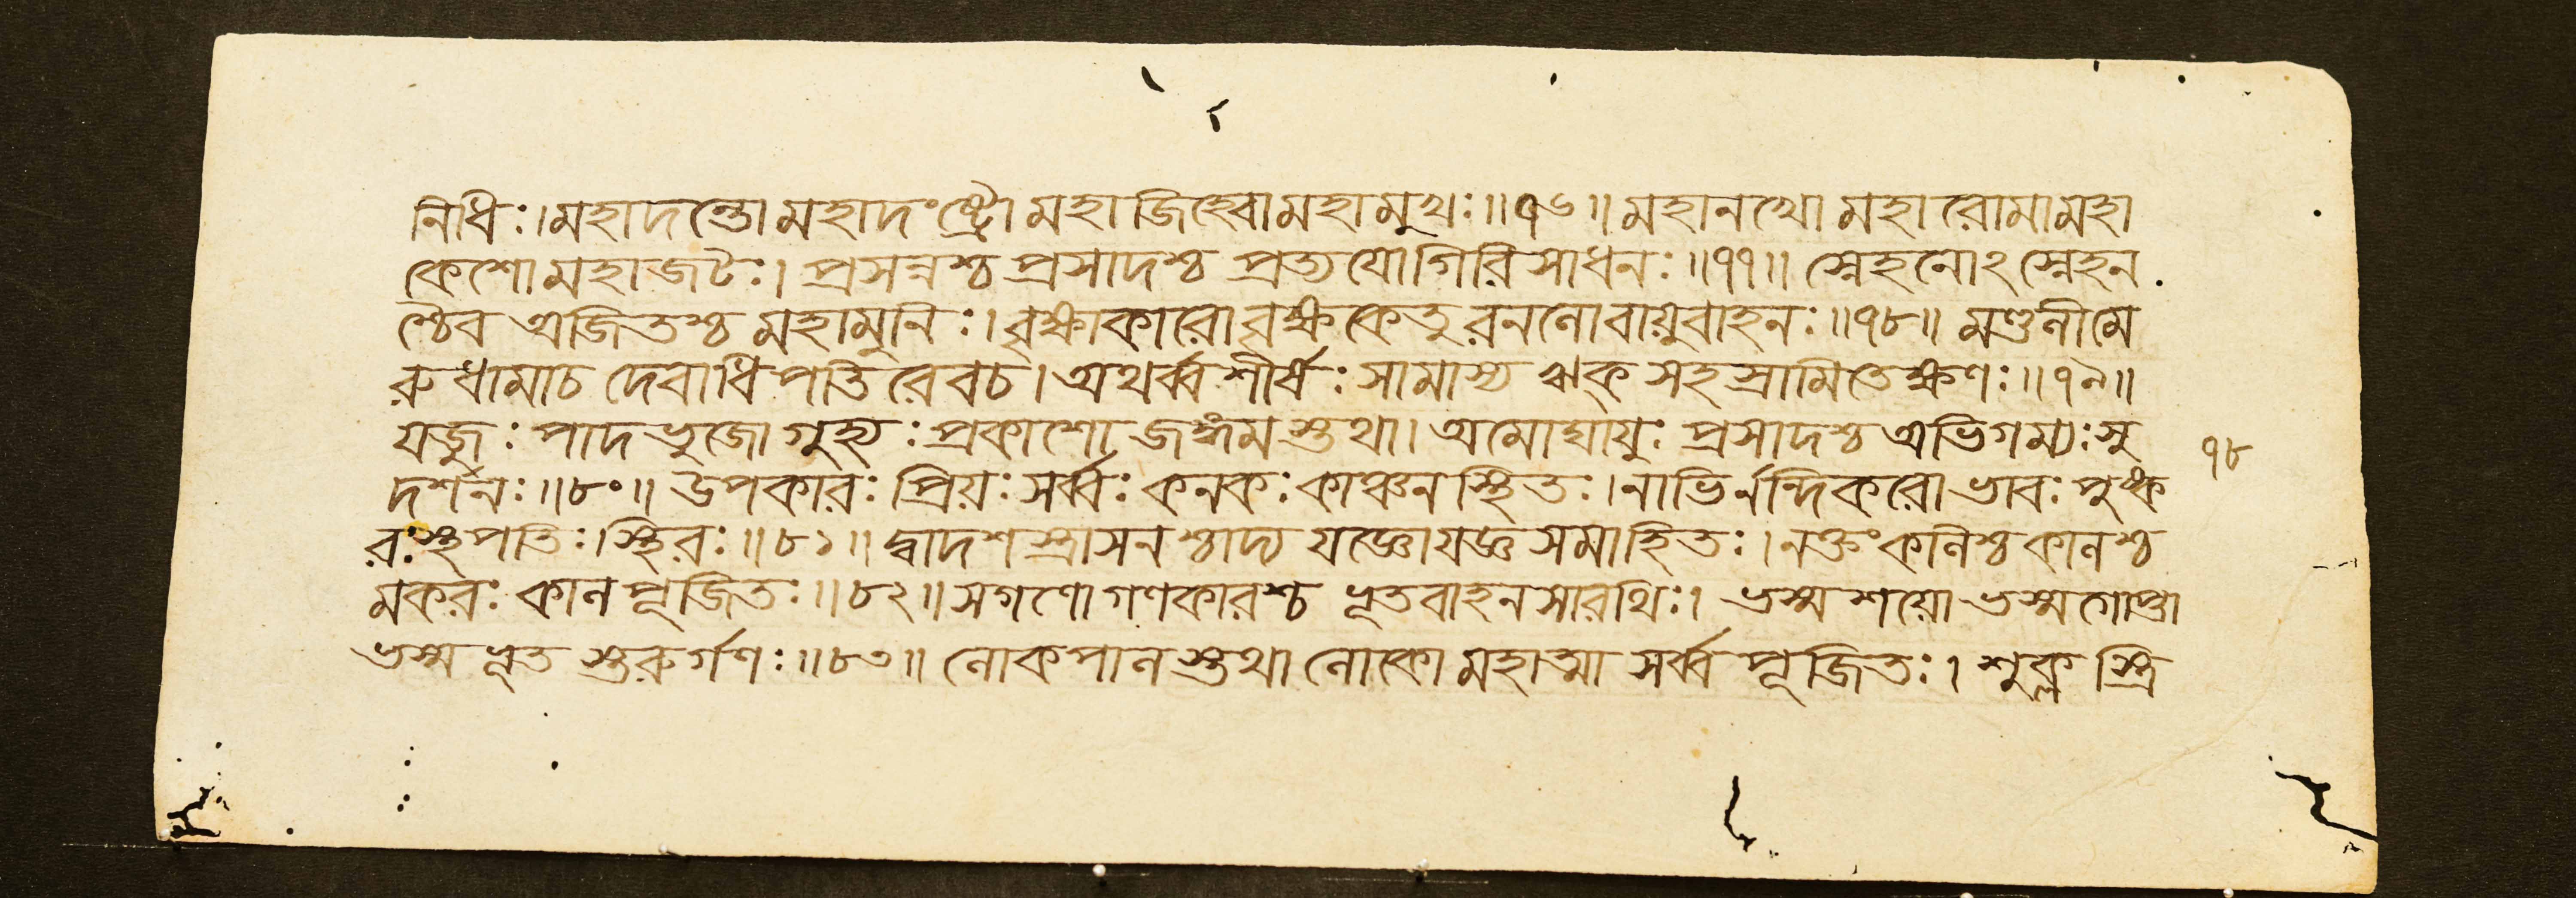 নিধিঃ।মহাদন্তো মহাদংষ্ট্রো মহাজিহ্বোমহামুখঃ॥৭৬॥মহানখো মহারোমামহা
কেশো মহাজটঃ। প্রসন্নশ্চ প্রসাদশ্চ প্রত্যযোগিরিসাধনঃ॥৭৭॥ স্নেহনোঽস্নেহন
শ্চৈব অজিতশ্চ মহামুনিঃ।বৃক্ষাকারোবৃক্ষকেতুরনলোবায়ুবাহনঃ॥৭৮॥ মণ্ডলীমে
রুধামাচ দেবাধিপতিরেবচ।অথর্ব্বশীর্ষঃ সামাস্য ঋক্ সহস্রামিতেক্ষণঃ॥৭৯॥
যজুঃ পাদভুজো গুহ্যঃ প্রকাশো জঙ্গমস্তথা।অমোঘাযুঃ প্রসাদশ্চ অভিগম্যঃসু
দর্শনঃ॥৮০॥ উপকারঃ প্রিয়ঃ সর্ব্বঃ কনকঃ কাঞ্চনস্থিতঃ।নাভির্নন্দিকরো ভাবঃ পুষ্ক
রঃস্থপতিঃ।স্থিরঃ॥৮১॥দ্বাদশস্ত্রাসনশ্চাদ্য যজ্ঞোযজ্ঞসমাহিতঃ।নক্তংকলিশ্চকালশ্চ
মকরঃ কালপূজিতঃ॥৮২॥সগণো গণকারশ্চ ভূতবাহনসারথিঃ। ভস্মশয়ো ভস্মগোপ্তা
ভস্মভূতস্তরুর্গণঃ॥৮৩॥ লোকপালস্তথা লোকো মহাত্মা সর্ব্বপূজিতঃ। শুক্লস্ত্রি
৭৮